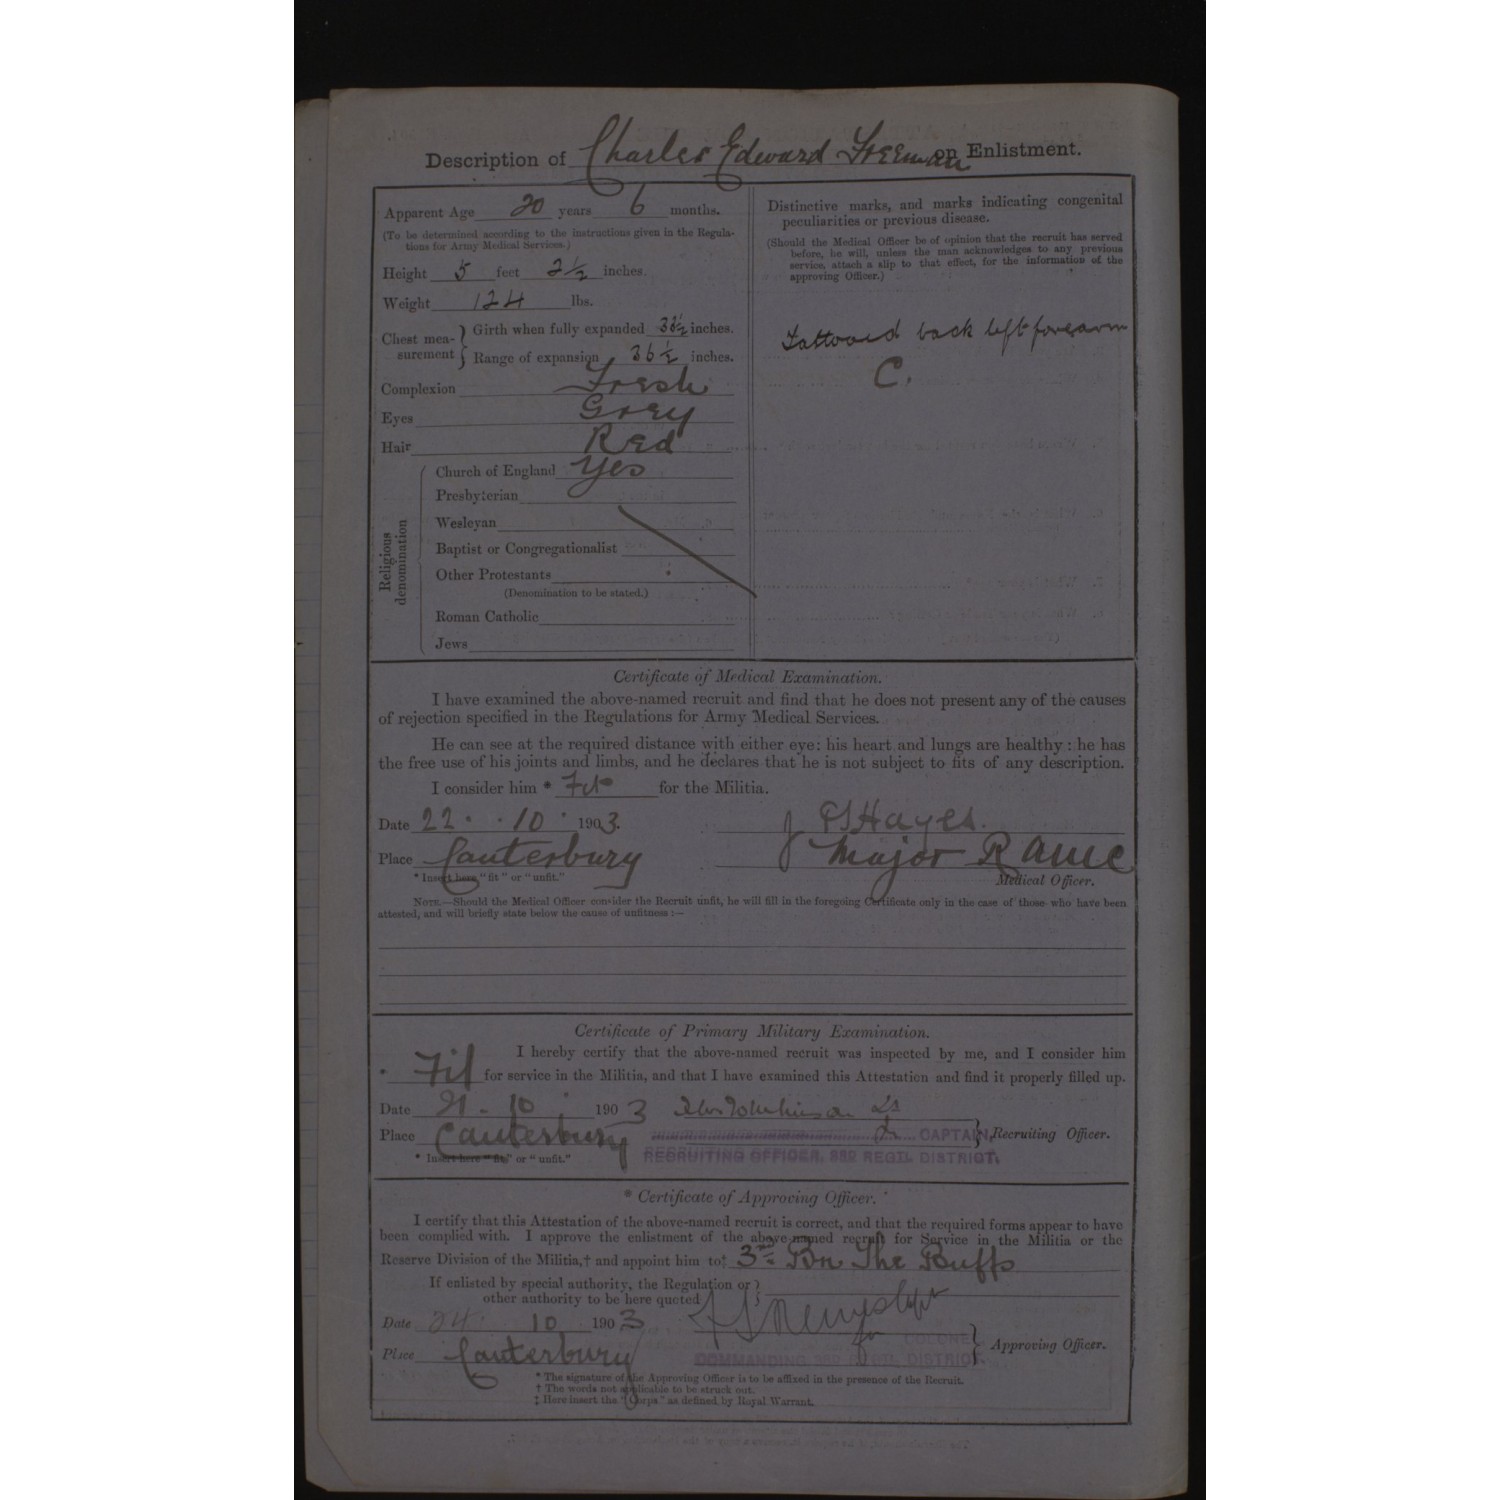 Description of Charles Edward Freeman on Enlistment.
Apparent Age 20 years 6 months.
(To be determined according to the instructions given in the Regula-
tions for Army Medical Services.)
Height 5 feet 2½ inches.
Weight 124 lbs.
Chest mea-
surement
Girth when fully expanded inches.
Range of expansion 36½ inches.
Complexion Fresh
Eyes Grey
Hair Red
Religious
denomination
Church of England Yes
Presbyterian
Wesleyan
Baptist or Congregationalist
Other Protestants
(Denomination to be stated.)
Roman Catholic
Jews
Distinctive marks, and marks indicating congenital
peculiarities or previous disease.
(Should the Medical Officer be of opinion that the recruit has served
before, he will, unless the man acknowledges to any previous
service, attach a slip to that effect, for the information of the
approving Officer.)
Tattooed back left forearm
C.
Certificate of Medical Examination.
I have examined the above-named recruit and find that he does not present any of the causes
of rejection specified in the Regulations for Army Medical Services.
He can see at the required distance with either eye: his heart and lungs are healthy: he has
the free use of his joints and limbs, and he declares that he is not subject to fits of any description.
I consider him * Fit for the Militia.
Date 22. 10. 1903.
Hayes.
Place Canterbury
Major RAMC
* Insert here "fit" or "unfit."
Medical Officer.
NOTE.—Should the Medical Officer consider the Recruit unfit, he will fill in the foregoing Certificate only in the case of those who have been
attested, and will briefly state below the cause of unfitness :—
Certificate of Primary Military Examination.
I hereby certify that the above-named recruit was inspected by me, and I consider him
* Fit for service in the Militia, and that I have examined this Attestation and find it properly filled up.
Date 21. 10. 1903
Place Canterbury
CAPTAIN, Recruiting Officer.
* Insert here "fit" or "unfit."
RECRUITING OFFICER, 3RD REGTL DISTRICT.
* Certificate of Approving Officer.
I certify that this Attestation of the above-named recruit is correct, and that the required forms appear to have
been complied with. I approve the enlistment of the above-named recruit for Service in the Militia or the
Reserve Division of the Militia,† and appoint him to‡ 3rd Bn The Buffs
If enlisted by special authority, the Regulation or
other authority to be here quoted
Date 24 10 1903
for COLONEL
Approving Officer.
Place Canterbury
COMMANDING 3RD REGTL DISTRICT.
* The signature of the Approving Officer is to be affixed in the presence of the Recruit.
† The words not applicable to be struck out.
‡ Here insert the "Corps" as defined by Royal Warrant.